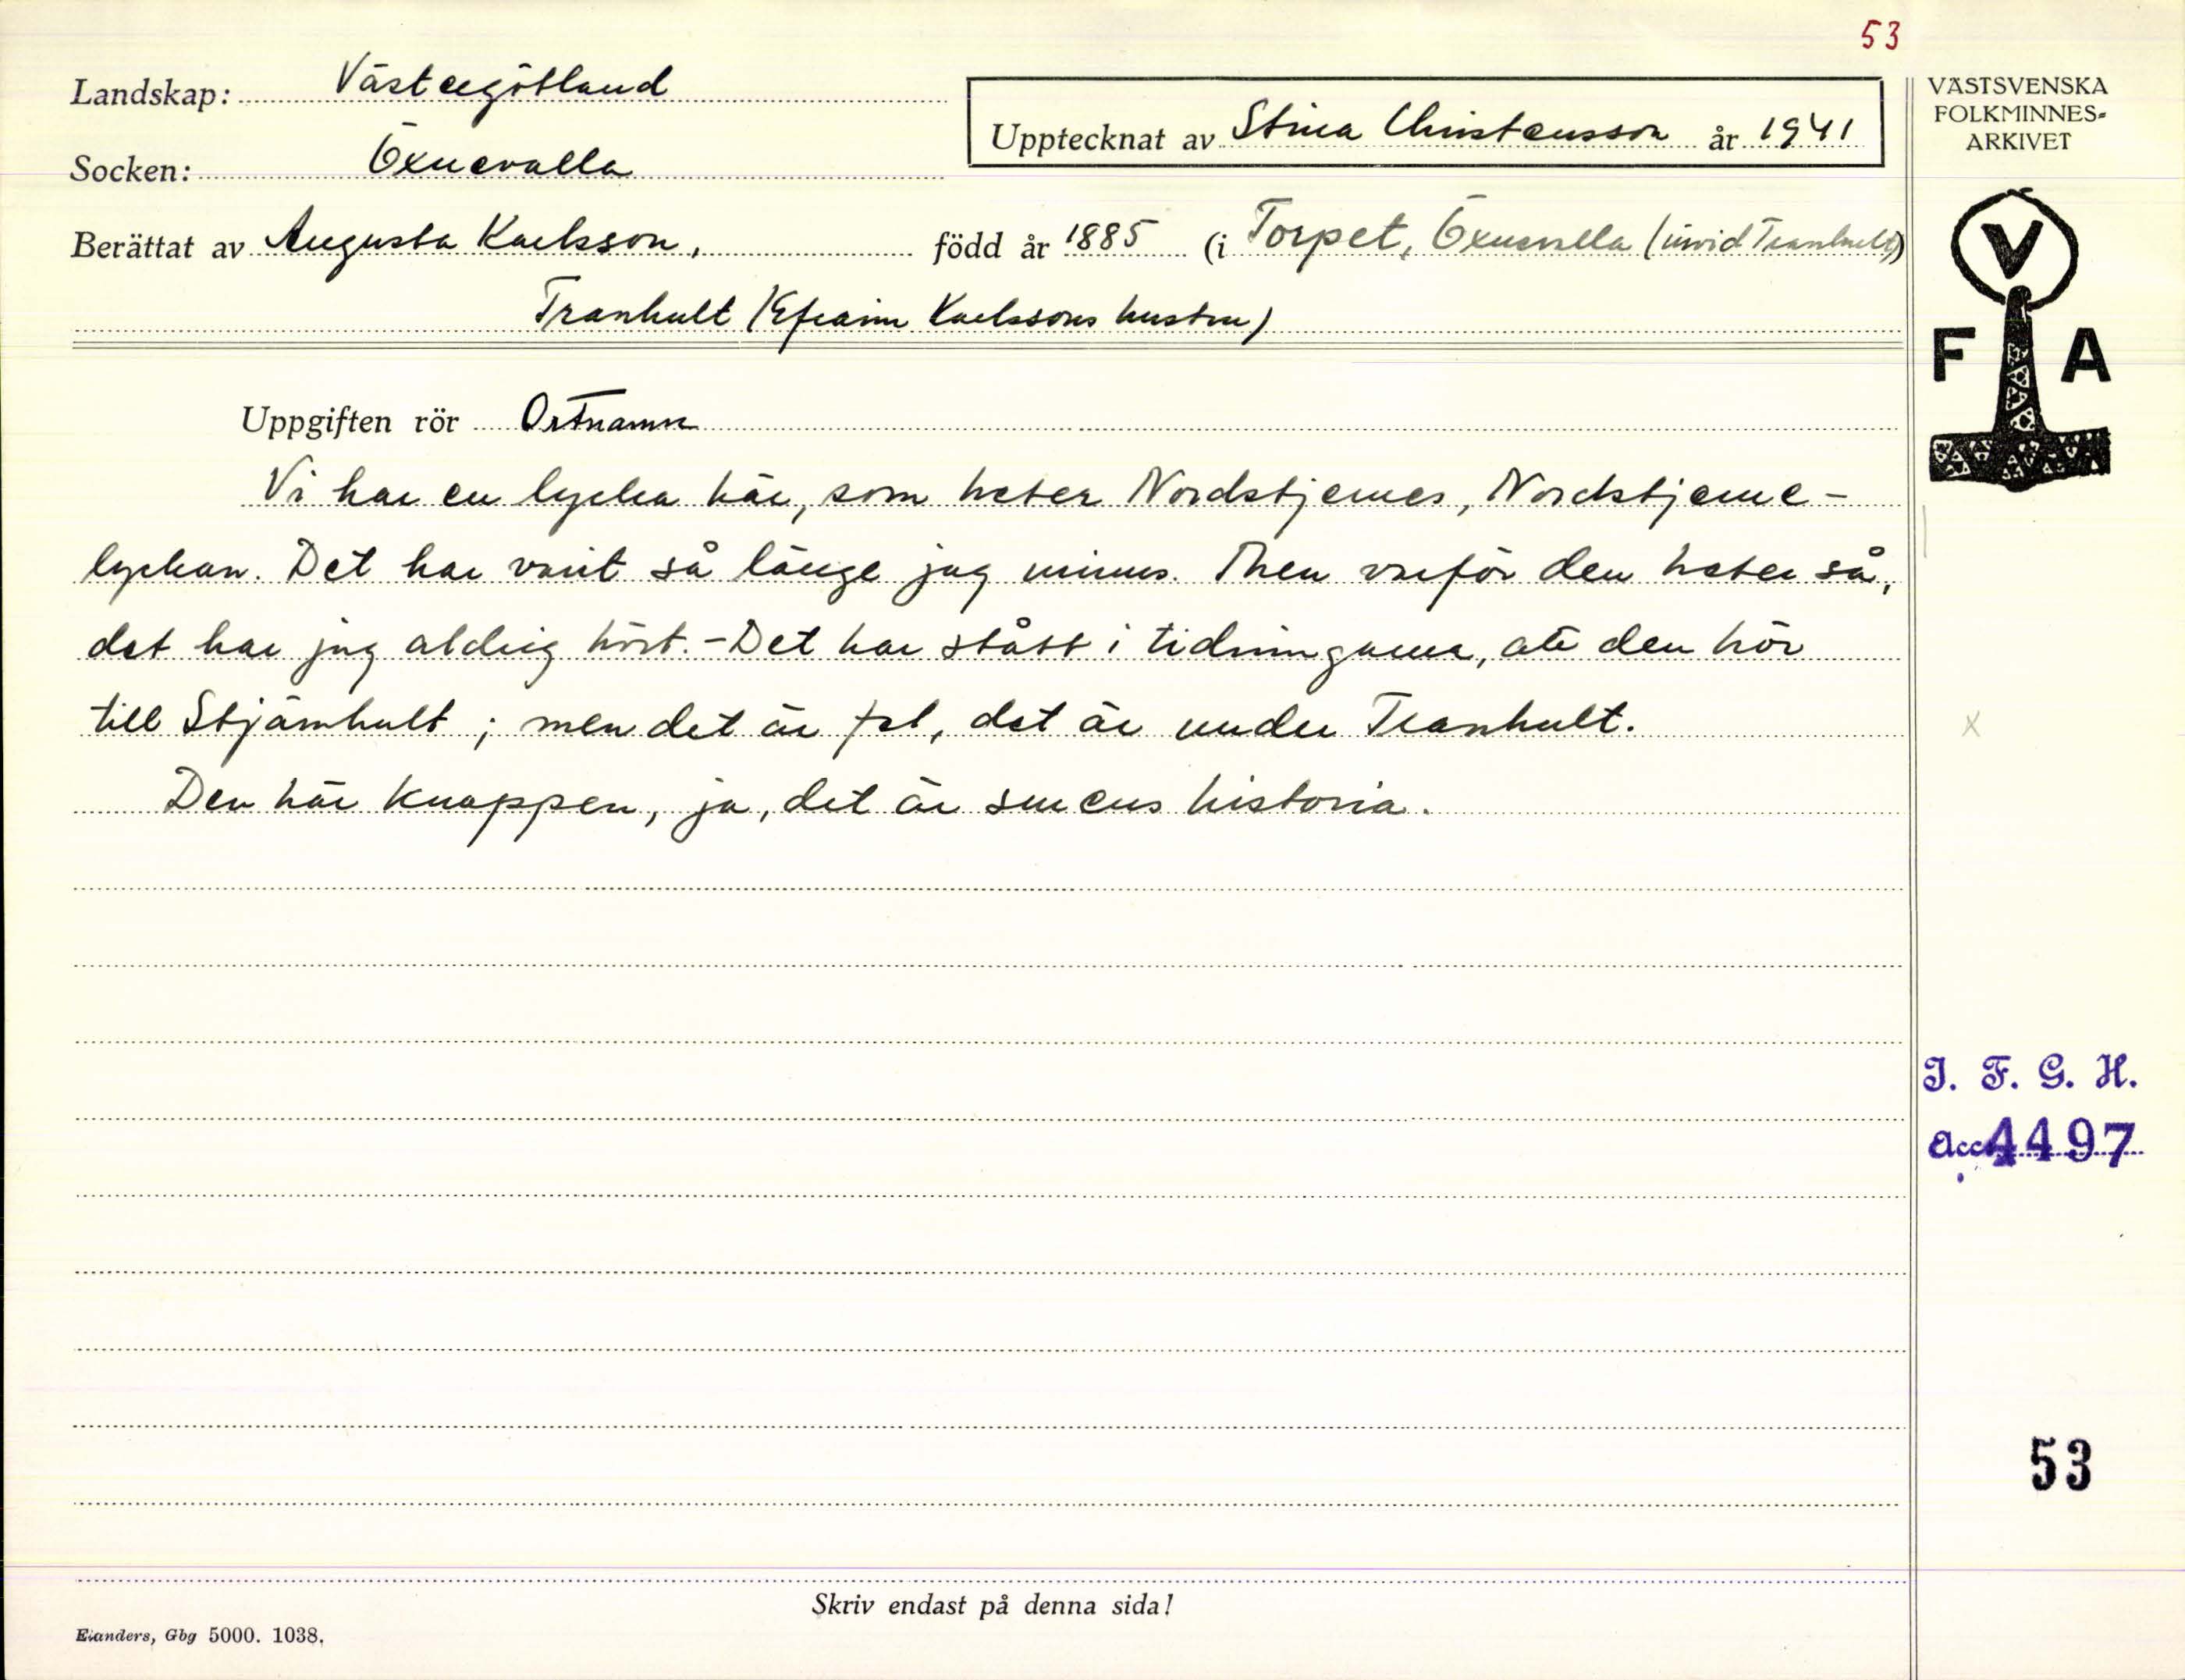 53
Landskap: Västergötland
Socken: Öxnevalla
Upptecknat av Stina Christensson år 1941
VÄSTSVENSKA
FOLKMINNES-
ARKIVET
Berättat av Augusta Karlsson, född år 1885 (i Torpet, Öxnevalla (invid Tranhult))
Tranhult (Efraim Karlssons hustru)
V
F A
Uppgiften rör Ortnamn
Vi har en lycka här, som heter Nordstjernes, Nordstjerne-
lyckan. Det har varit så länge jag minns. Men varför den heter så,
det har jag aldrig hört. - Det har stått i tidningarna, att den hör
till Stjärnhult; men det är fel, det är under Tranhult.
Den här knappen, ja, det är historia.
I. F. G. H.
Acc. 4497
53
Skriv endast på denna sida!
Elanders, Gbg 5000. 1038.